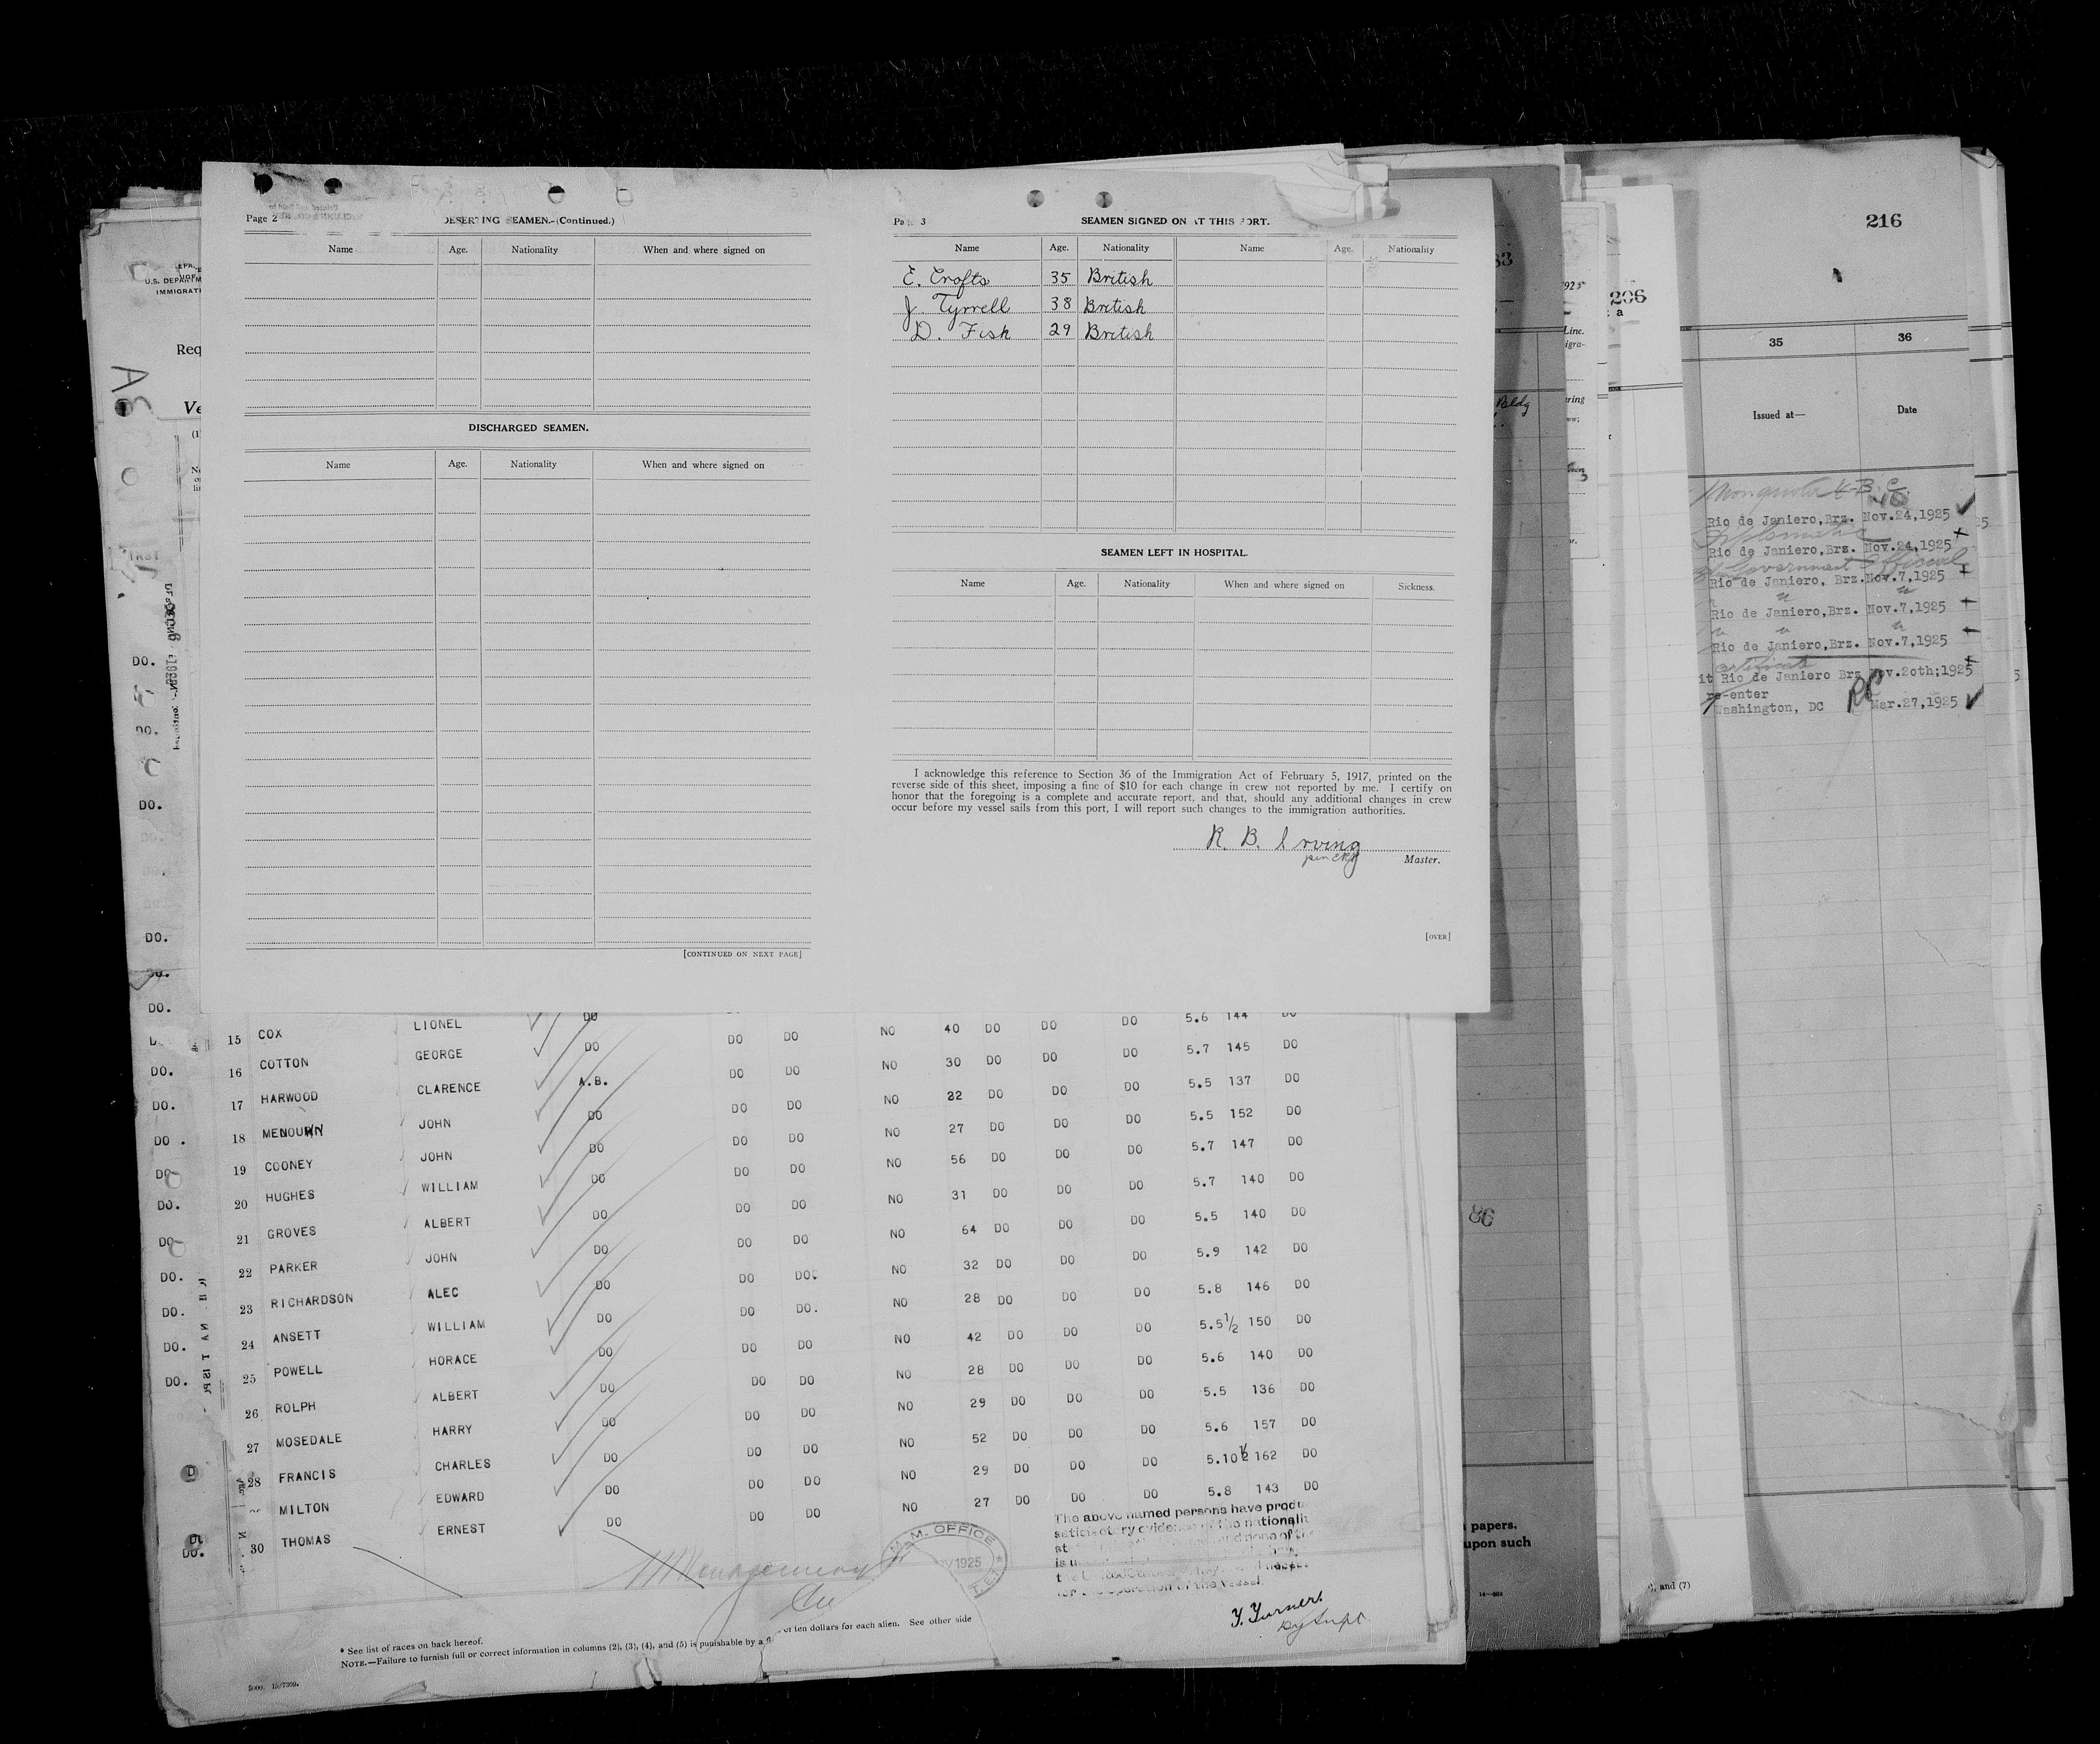 Page 2
DESERTING SEAMEN.-(Continued.)
Name Age. Nationality When and where signed on
DISCHARGED SEAMEN.
Name Age. Nationality When and where signed on
[CONTINUED ON NEXT PAGE]
3
SEAMEN SIGNED ON AT THIS PORT.
Name Age. Nationality Name Age. Nationality
E. Crofts 35 British
J. Tyrrell 38 British
D. Fish 29 British
SEAMEN LEFT IN HOSPITAL.
Name Age. Nationality When and where signed on Sickness.
I acknowledge this reference to Section 36 of the Immigration Act of February 5, 1917, printed on the
reverse side of this sheet, imposing a fine of $10 for each change in crew not reported by me. I certify on
honor that the foregoing is a complete and accurate report, and that, should any additional changes in crew
occur before my vessel sails from this port, I will report such changes to the immigration authorities.
R. B. Irving
Master.
[OVER]
15 COX LIONEL DO DO DO NO 40 DO DO DO 5.6 144 DO
16 COTTON GEORGE DO DO DO NO 30 DO DO DO 5.7 145 DO
17 HARWOOD CLARENCE A.B. DO DO NO 22 DO DO DO 5.5 137 DO
18 JOHN DO DO DO NO 27 DO DO DO 5.5 152 DO
19 COONEY JOHN DO DO DO NO 56 DO DO DO 5.7 147 DO
20 HUGHES WILLIAM DO DO DO NO 31 DO DO DO 5.7 140 DO
21 GROVES ALBERT DO DO DO NO 64 DO DO DO 5.5 140 DO
22 PARKER JOHN DO DO DO NO 32 DO DO DO 5.9 142 DO
23 RICHARDSON ALEC DO DO DO. NO 28 DO DO DO 5.8 146 DO
24 ANSETT WILLIAM DO DO DO NO 42 DO DO DO 5.5½ 150 DO
25 POWELL HORACE DO DO DO NO 28 DO DO DO 5.6 140 DO
26 ROLPH ALBERT DO DO DO NO 29 DO DO DO 5.5 136 DO
27 MOSEDALE HARRY DO DO DO NO 52 DO DO DO 5.6 157 DO
28 FRANCIS CHARLES DO DO DO NO 29 DO DO DO 5.10½ 162 DO
MILTON EDWARD DO DO DO NO 27 DO DO DO 5.8 143 DO
30 THOMAS ERNEST DO
The above named persons have
evidence of the
the operation of the vessel.
M. OFFICE
1925
Y. Turner.
* See list of races on back hereof.
NOTE.—Failure to furnish full or correct information in columns (2), (3), (4), and (5) is punishable by a
of ten dollars for each alien. See other side
U.S. DEPARTM
IMMIGRATI
Req
Ve
DO.
DO.
DO.
DO.
DO.
DO.
DO.
DO.
DO.
DO.
DO.
DO.
DO.
206
86
papers.
upon such
, and (7)
216
35 36
Issued at— Date
Rio de Janiero,Brz. Nov.24,1925
Rio de Janiero,Brz. Nov.24,1925
Government Official
Rio de Janiero, Brz. Nov.7,1925
Rio de Janiero,Brz. Nov.7,1925
Rio de Janiero,Brz. Nov.7,1925
it Rio de Janiero Brz Nov.2oth;1925
re-enter
Washington, DC Mar.27,1925